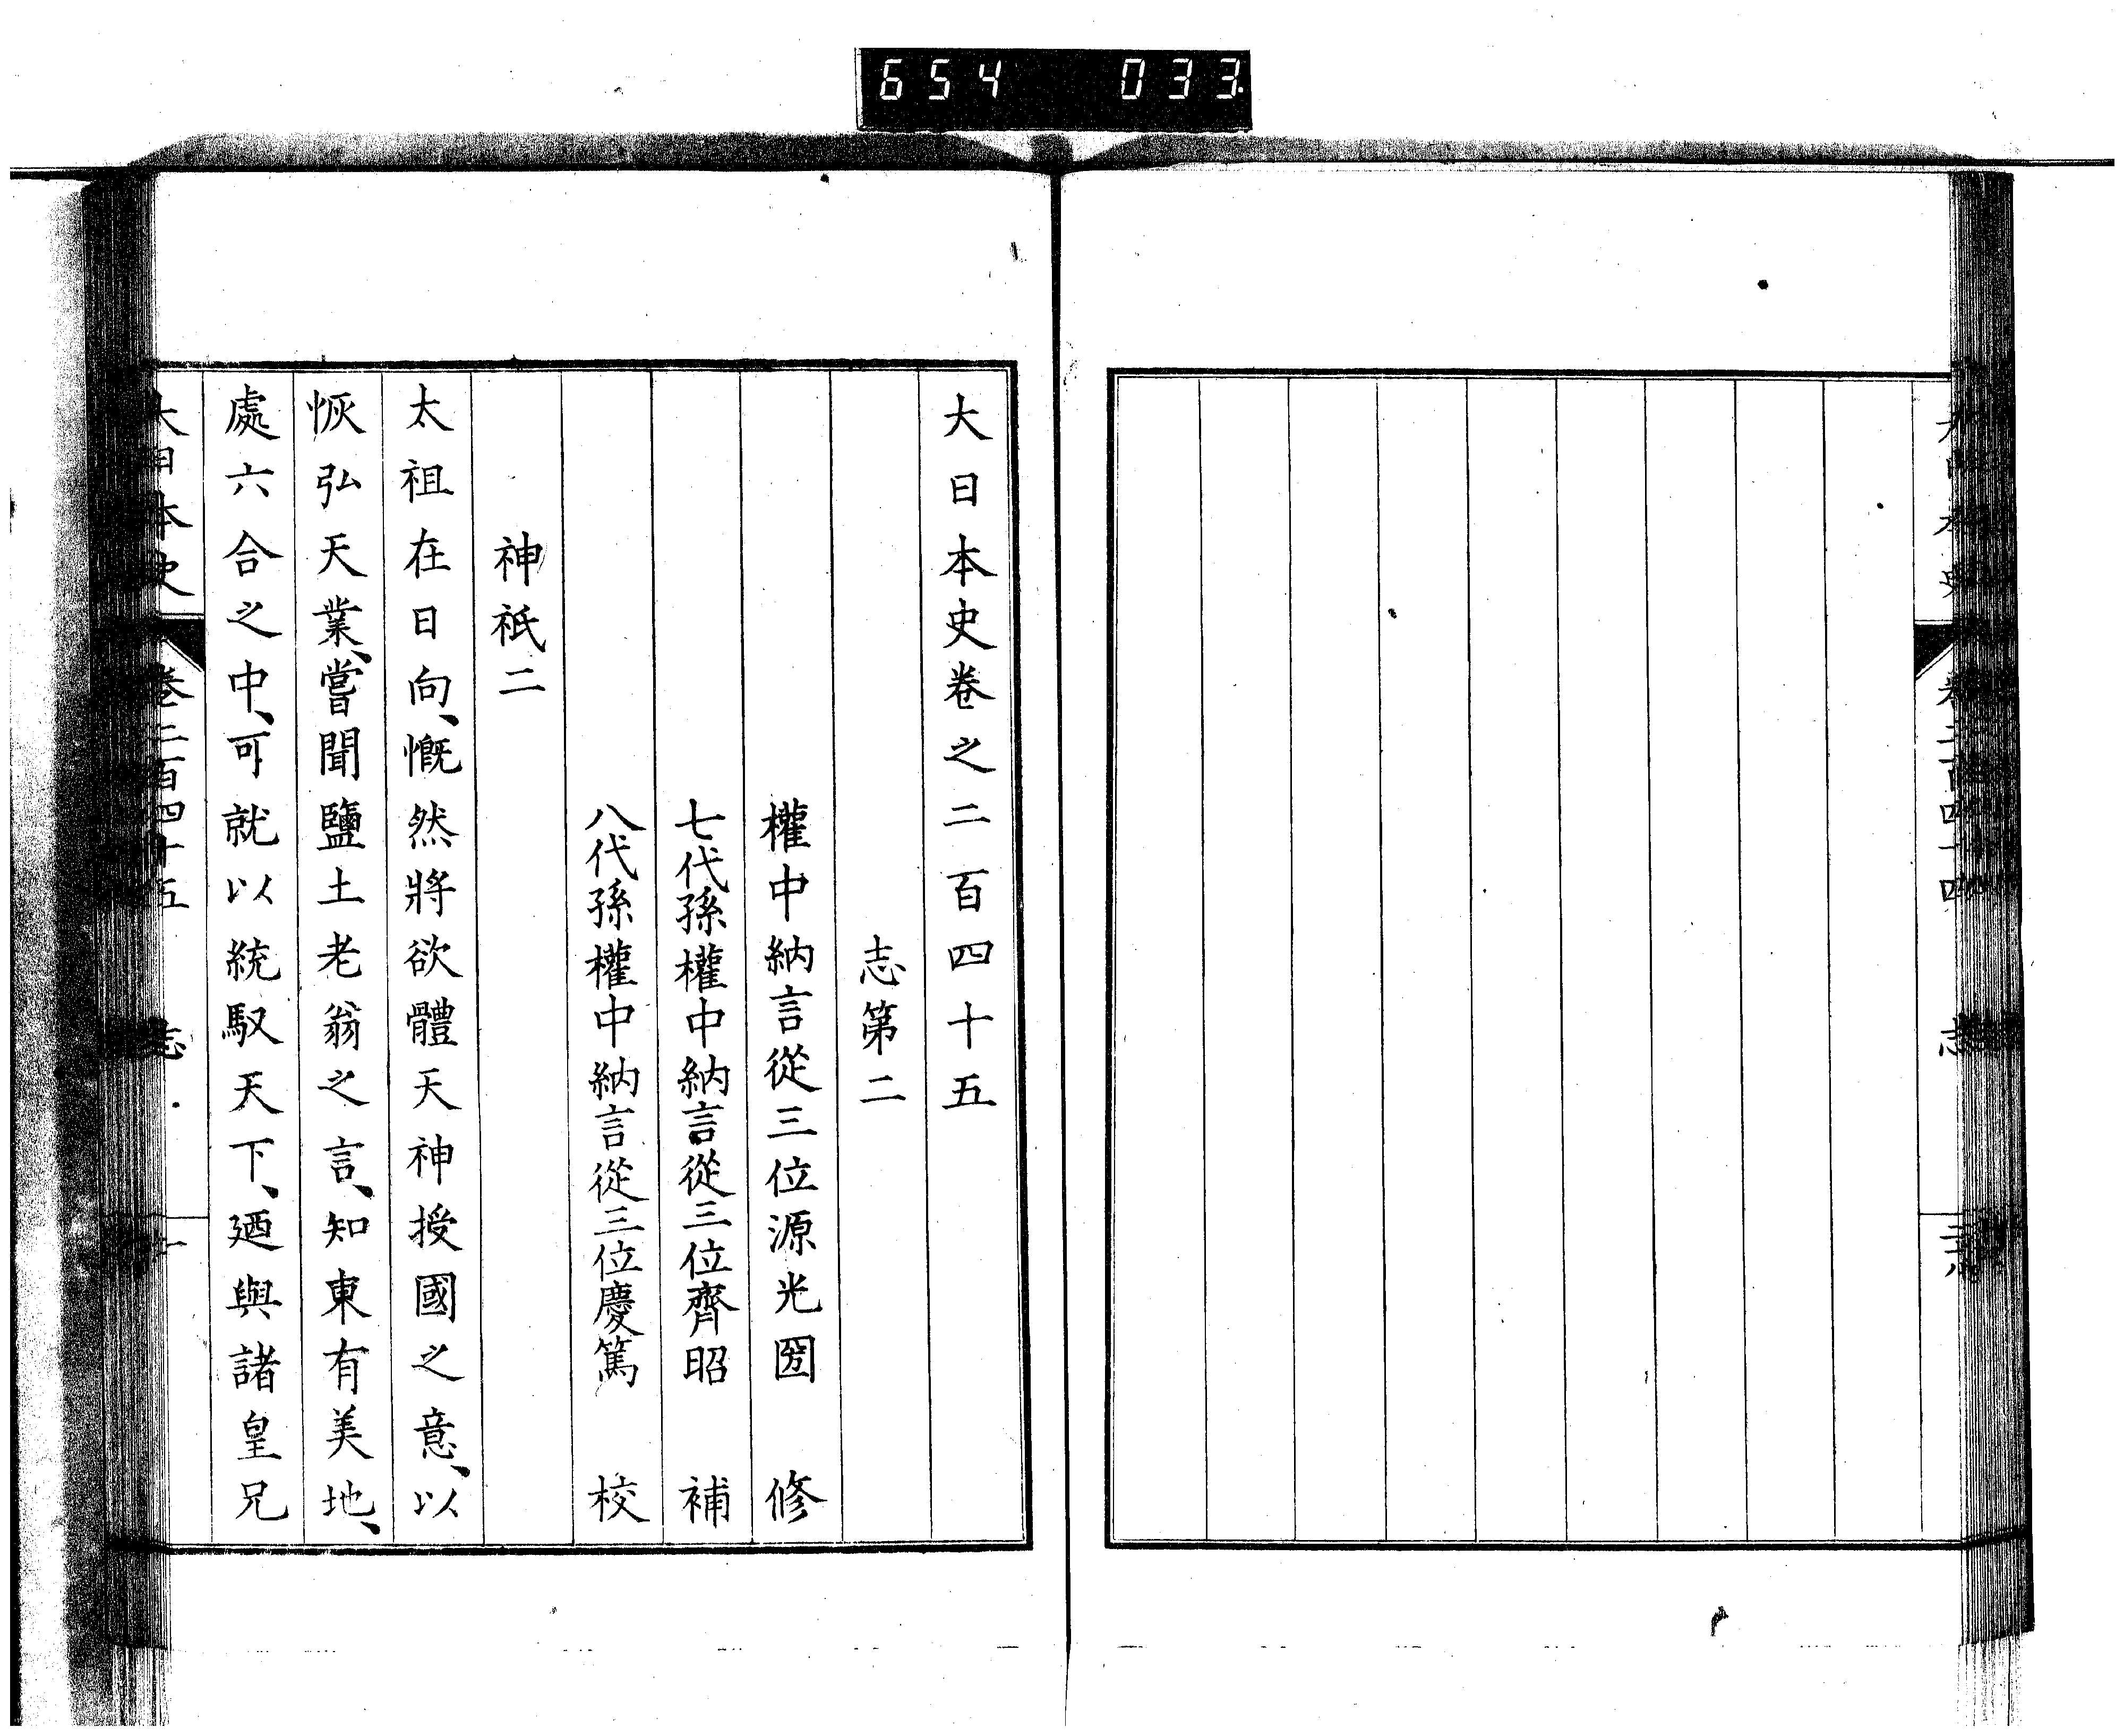 654 033
大日本史卷之二百四十五
志第二
權中納言從三位源光圀 修
七代孫權中納言從三位齊昭 補
八代孫權中納言從三位慶篤 校
神祇二
太祖在日向、慨然將欲體天神授國之意、以
恢弘天業、嘗聞鹽土老翁之言、知東有美地、
處六合之中、可就以統馭天下、廼與諸皇兄
大日本史 卷二百四十五 志